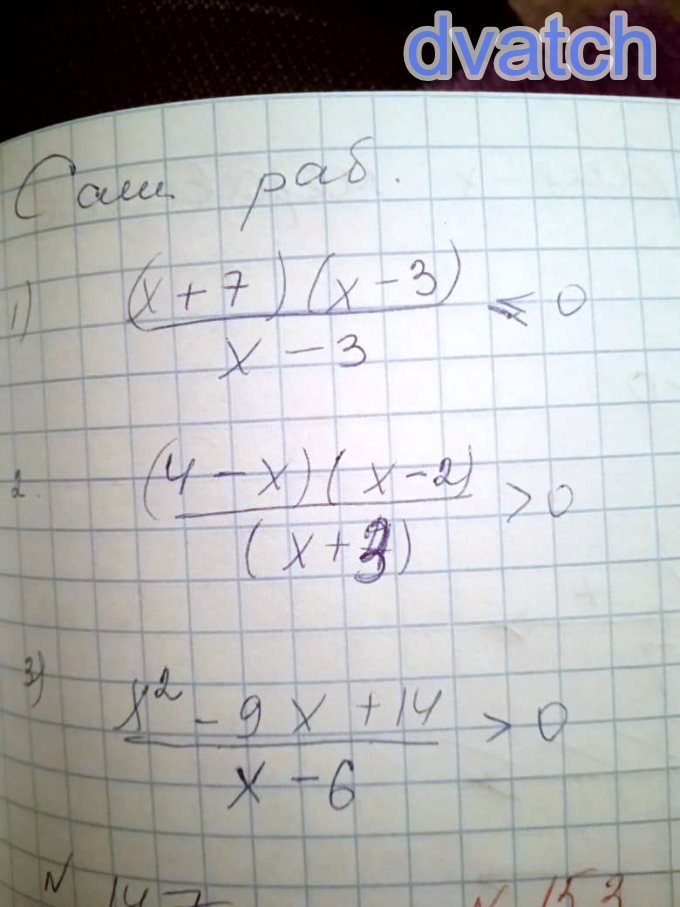 dvatch
Сам раб.
1) (x + 7)(x - 3) / x - 3 ≤ 0
2. (4 - x)(x - 2) / (x + 3) > 0
3) x² - 9x + 14 / x - 6 > 0
N 147 N 153